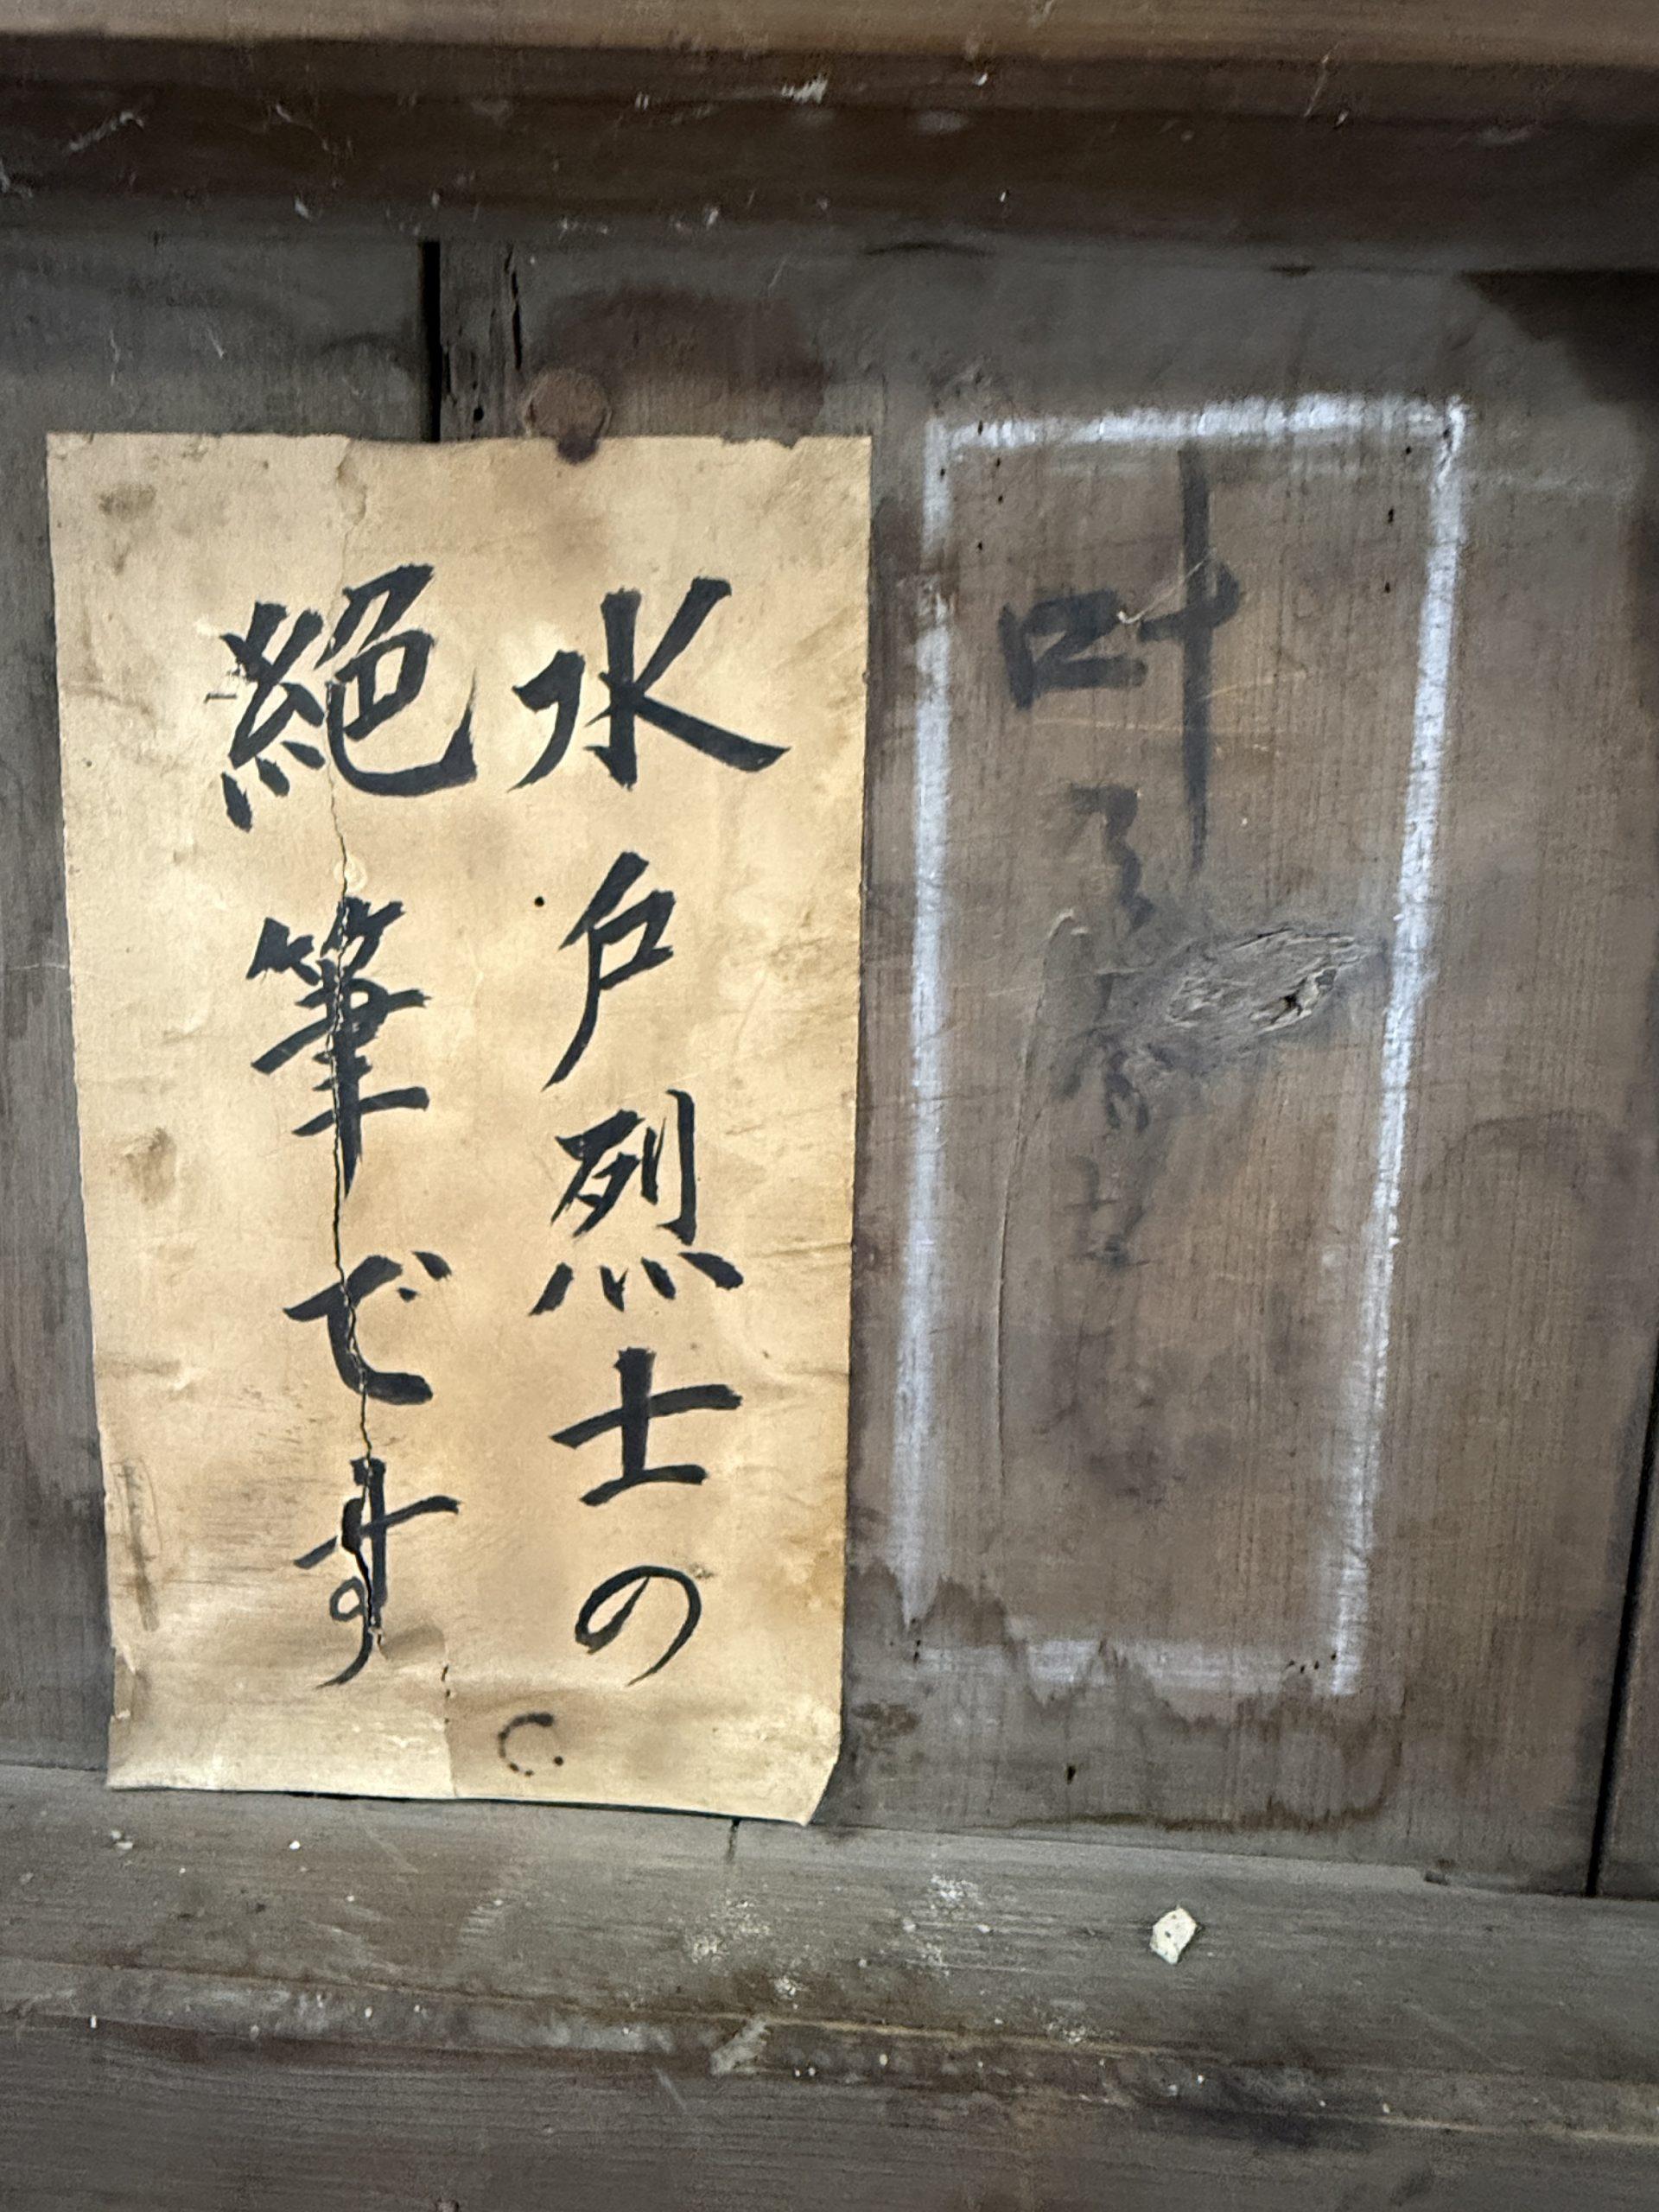 叶
水戸烈士の
絶筆です